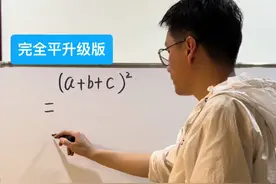 完全平升级版
(a+b+c)²
=